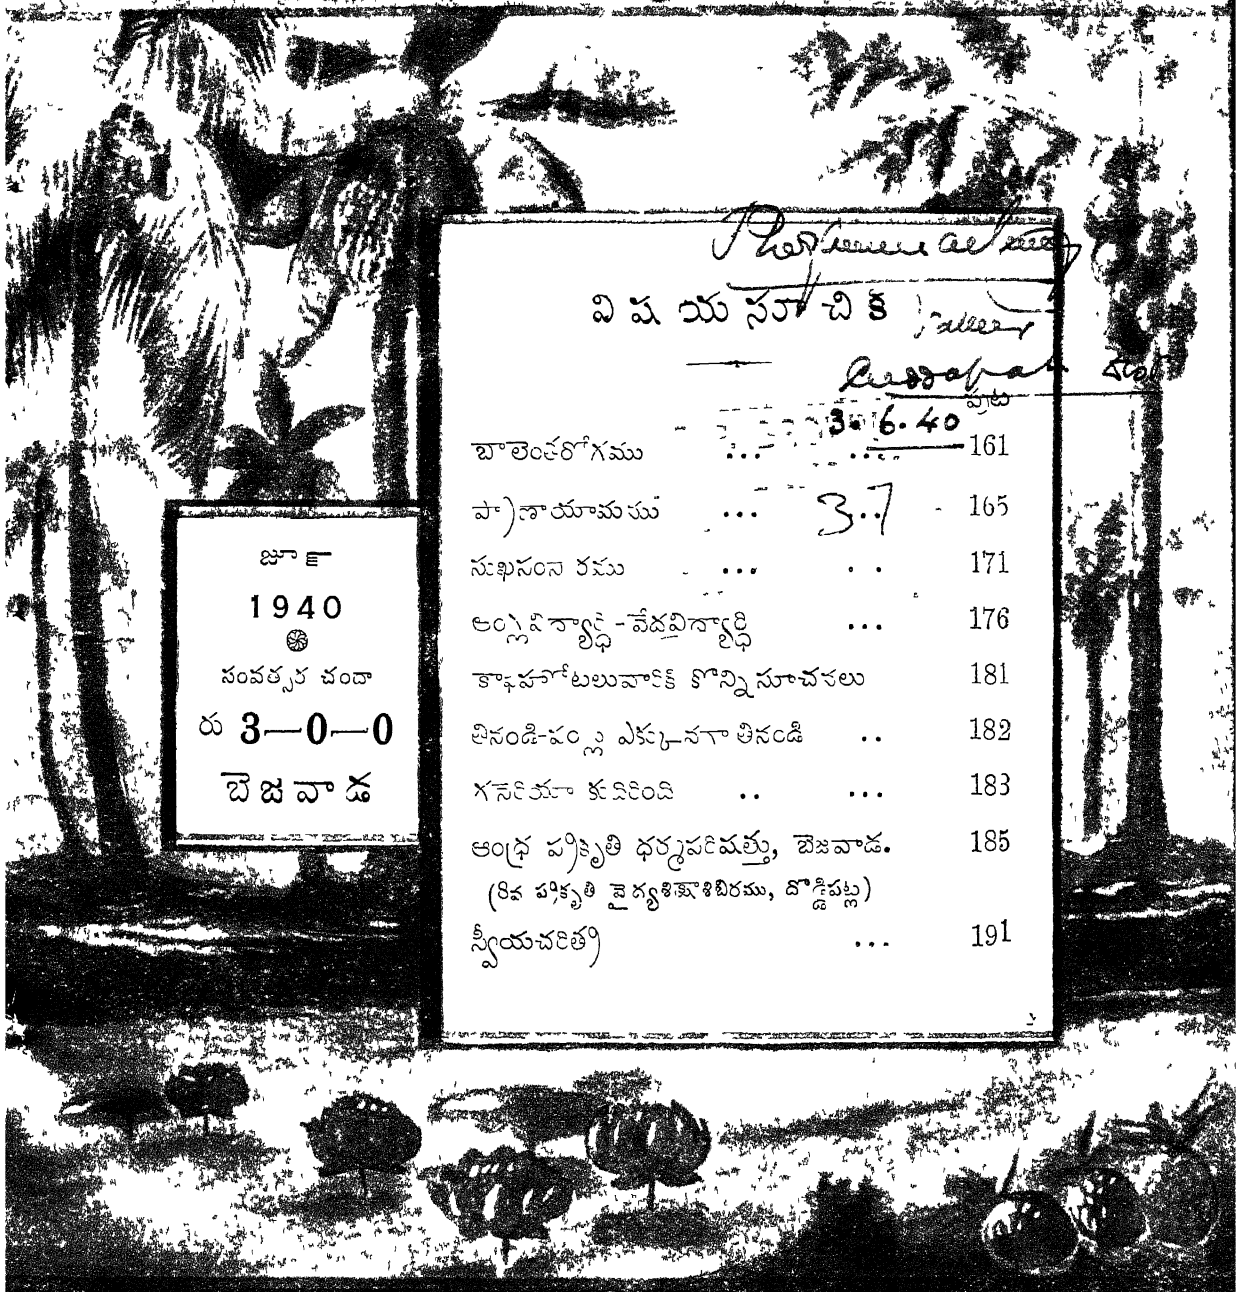 విషయసూచిక
పుట
3.6.40
బాలెంతరోగము ... ... 161
ప్రాణాయామము ... 165
37
సుఖసంసారము ... .. 171
ఆంగ్లవిద్యార్థి-వేదవిద్యార్థి ... 176
కాఫిహోటలువారికి కొన్ని సూచనలు 181
తినండి-పండ్లు ఎక్కువగా తినండి .. 182
గనేరియా కుదిరింది .. ... 183
ఆంధ్ర ప్రకృతి ధర్మపరిషత్తు, బెజవాడ. 185
(8వ ప్రకృతి వైద్యశిక్షాశిబిరము, దొడ్డిపట్ల)
స్వీయచరిత్ర ... 191
జూన్
1940
సంవత్సర చందా
రు 3—0—0
బెజవాడ